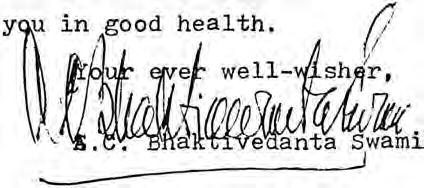 you in good health.
Your ever well-wisher,
A.C. Bhaktivedanta Swami
A.C. Bhaktivedanta Swami